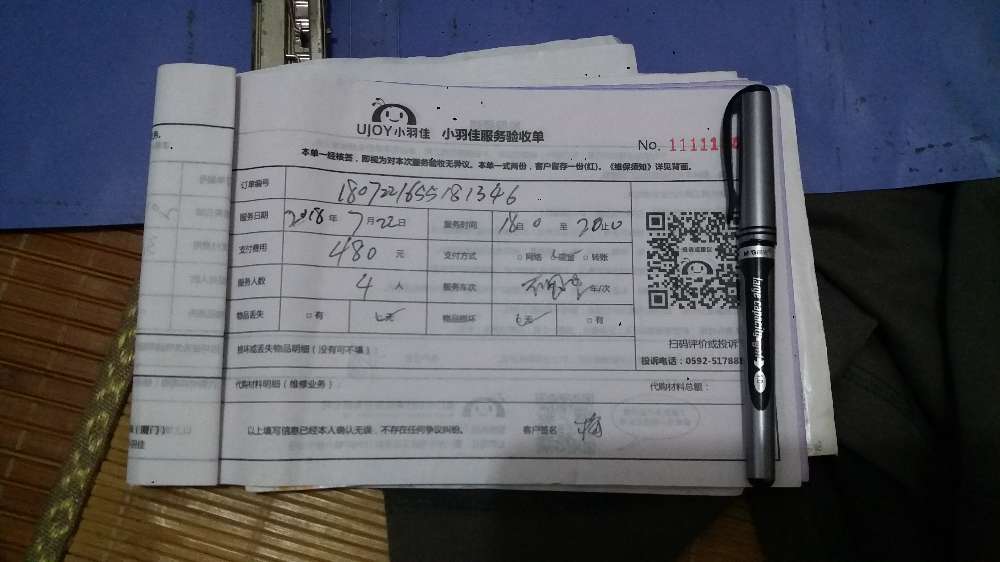 UJOY小羽佳 小羽佳服务验收单
No. 1111
本单一经核签，即视为对本次服务验收无异议。本单一式两份，客户留存一份(红)。《维保须知》详见背面。
订单编号 1807221655181346
服务日期 2018年 7月22日 服务时间 18:0 至 20:0
支付费用 480 元 支付方式 □网络 现金 □转账
服务人数 4 人 服务车次 年/次
物品丢失 □有 无 物品损坏 无 □有
扫码评价或投诉
损坏或丢失物品明细（没有可不填）：
投诉电话：0592-51788
代购材料明细（维修业务）： 代购材料总额：
以上填写信息已经本人确认无误 不存在任何争议纠纷。 客户签名：
large capacity